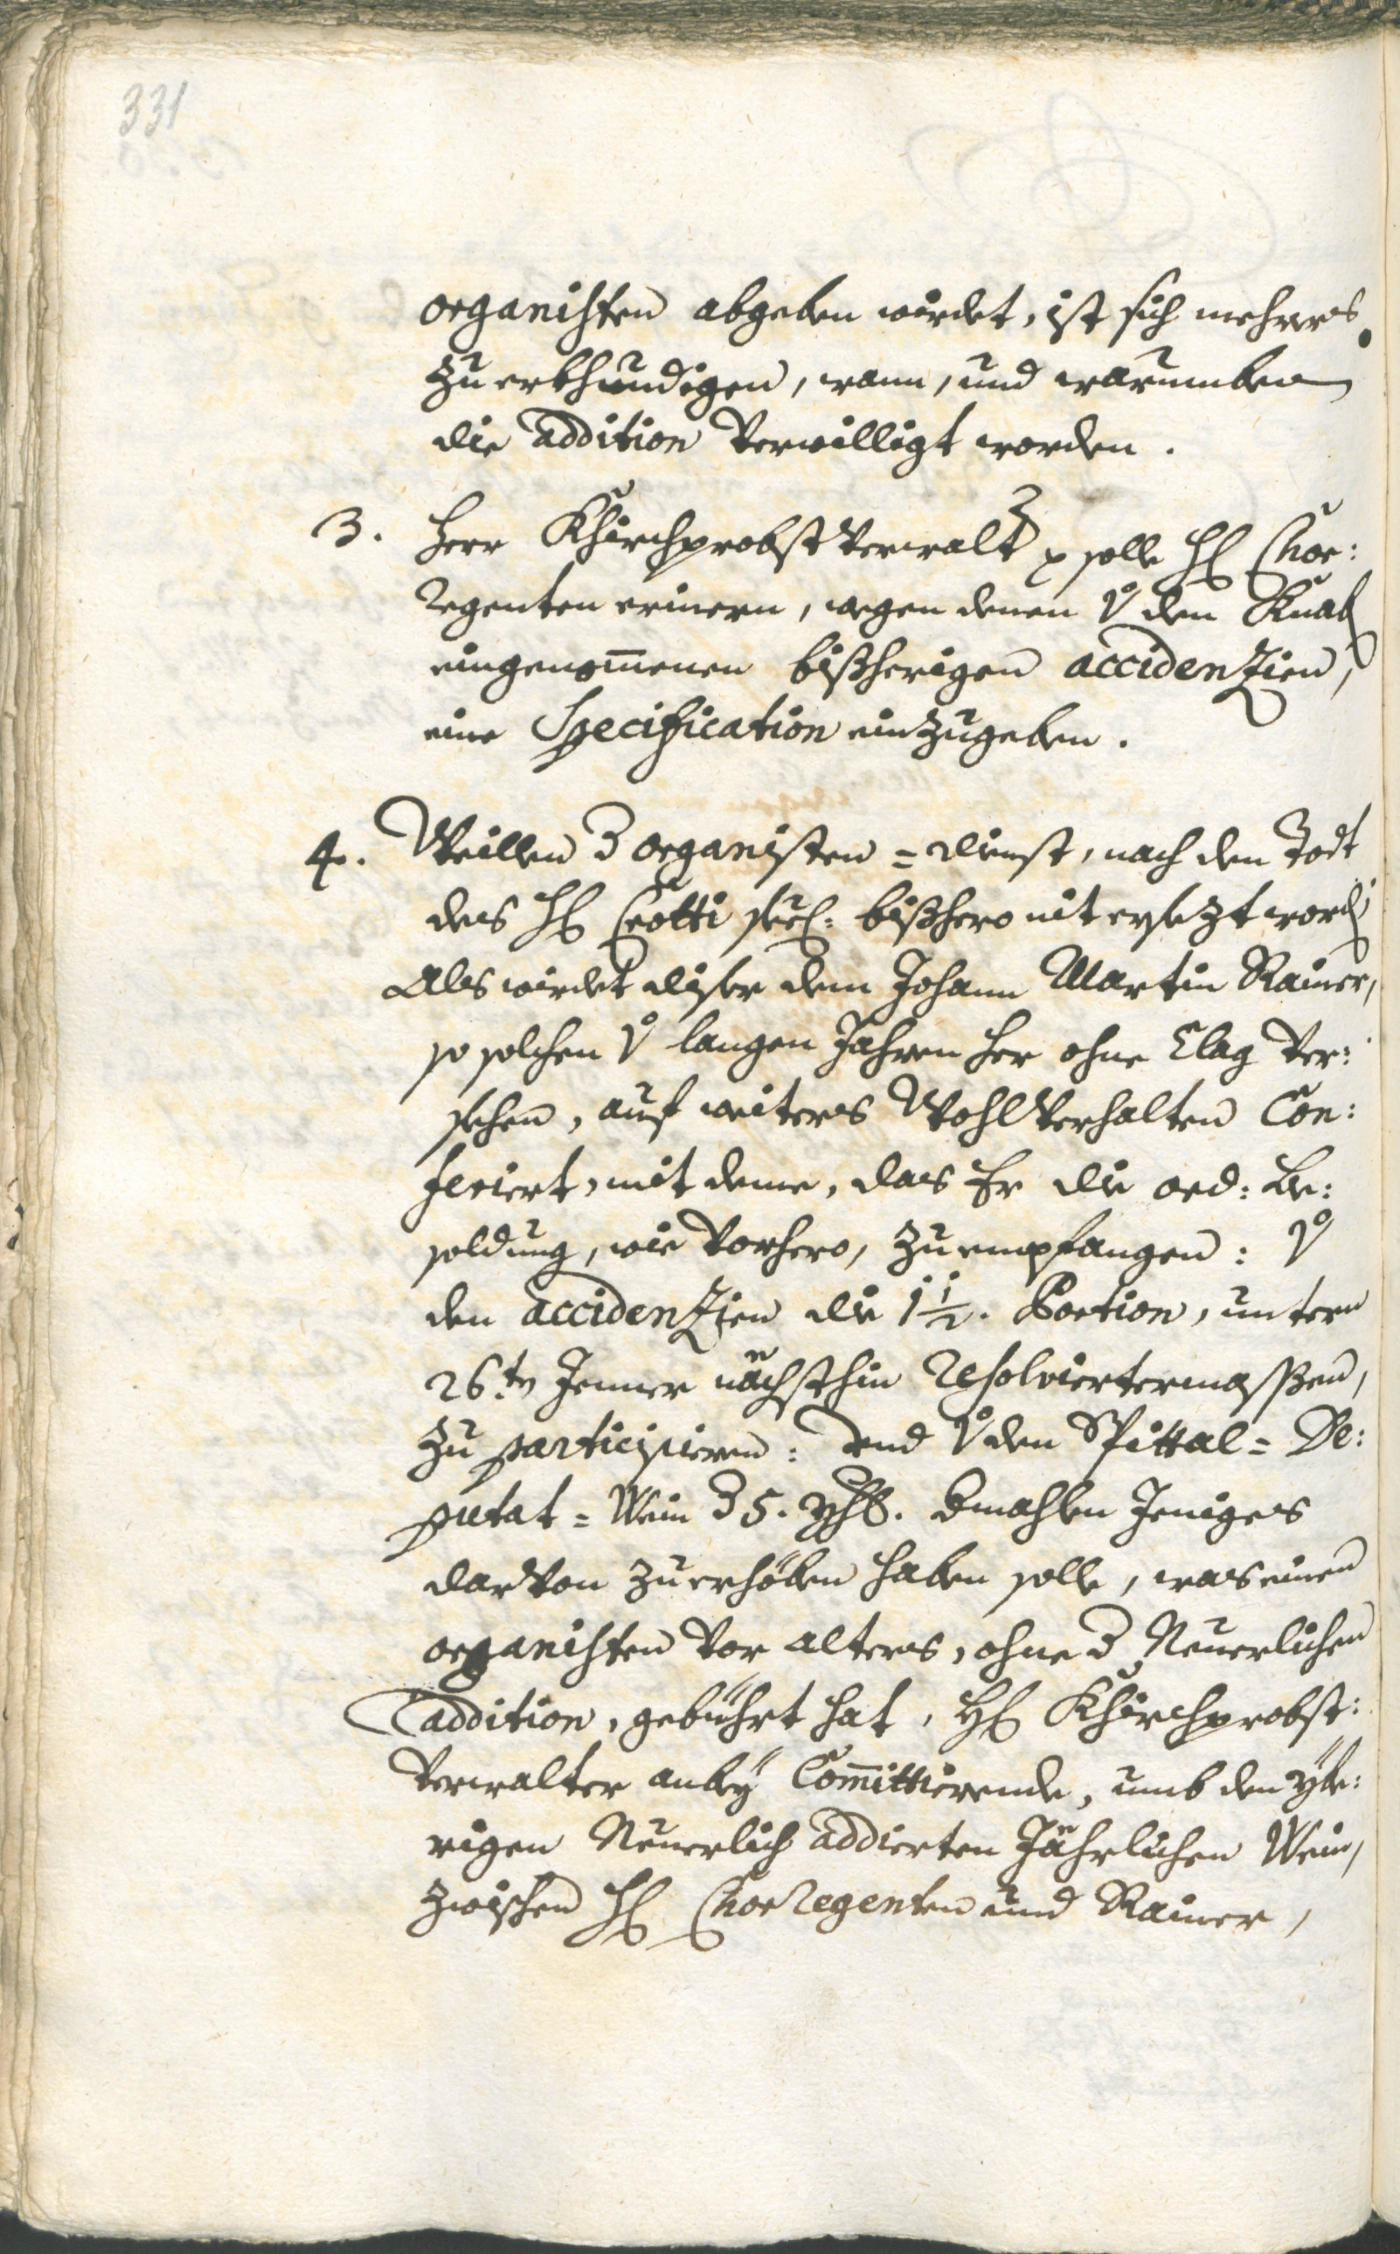 331
organisten abgeben wirdet, ist sich mehrers
zu erkhundigen, wann, und warumben
die addition verwilligt worden.
3. Herr Khirchprobst verwalt solle H Chor:
Regenten erinern, wegen denen den Knab
eingenom̄enen bißherigen accidenzien,
eine Specification einzugeben.
4. Weillen organisten=dienst, nach dem Todt
des H Crotti seel: bißhero nit ersezt word
Als wirdet diser dem Johann Martin Rainer,
so solchen langen Jahren her ohne Clag ver:
sehen, auf weiters Wohlverhalten Con:
feriert, mit deme, das Er die ord: Be:
soldung, wie vorhero, zu empfangen:
den accidenzien die 1 1/2. Portion, untern
26.ten Jenner nächsthin Resolviertermassen,
zu participieren: und den Spittal=De:
putat=Wein 5. yhl. mahlen Jeniges
darvon zu erhöben haben solle, was einen
organisten vor alters, ohne Neuerlichen
addition, gebührt hat, H Khirchprobst:
verwalter anbey Com̄ittierende, umb den ybe:
rigen Neuerlich addierten Jährlichen Wein,
zwischen H ChorRegenten und Rainer,